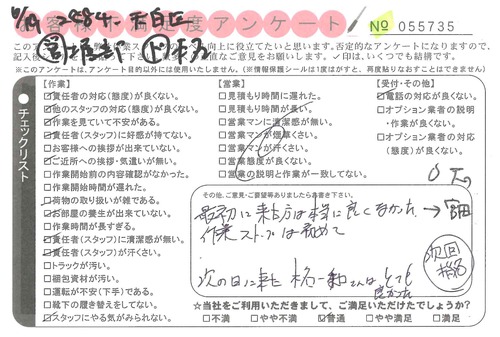 6/19 2984- 天白区
お客様不満足度アンケート
№ 055735
この
記入後
向上に役立てたいと思います。否定的なアンケートになりますので、
直なご意見をお願い致します。✓印は、いくつでも結構です。
(※このアンケートは、アンケート目的以外には使用いたしません。)(※情報保護シールは1度はがすと、再度貼りなおすことはできません)
チェックリスト
【作業】
責任者の対応(態度)が良くない。
他のスタッフの対応(態度)が良くない。
作業を見ていて不安がある。
責任者(スタッフ)に好感が持てない。
お客様への挨拶が出来ていない。
ご近所への挨拶・気遣いが無い。
作業開始前の内容確認がなかった。
作業開始時間が遅れた。
荷物の取り扱いが雑である。
お部屋の養生が出来ていない。
作業時間が長すぎる。
責任者(スタッフ)に清潔感が無い。
責任者(スタッフ)が汗くさい。
トラックが汚い。
梱包資材が汚い。
運転が不安(下手)である。
靴下の履き替えをしてない。
スタッフにやる気がみられない。
【営業】
見積もり時間に遅れた。
見積もり時間が長い。
営業マンに清潔感が無い。
営業マンが煙草くさい。
営業マンが汗くさい。
営業態度が良くない。
営業の説明と作業が一致してない。
【受付・その他】
電話の対応が良くない。
オプション業者の説明
・作業が良くない。
オプション業者の対応
(態度)が良くない。
その他、ご意見・ご要望等ありましたらお書き下さい。
最初に来た方は本当に良くなかった →
作業ストップは初めて
次の日に来た
さんはとても
良かった
次回
☆当社をご利用いただきまして、ご満足いただけたでしょうか?
不満 やや不満 普通 やや満足 満足